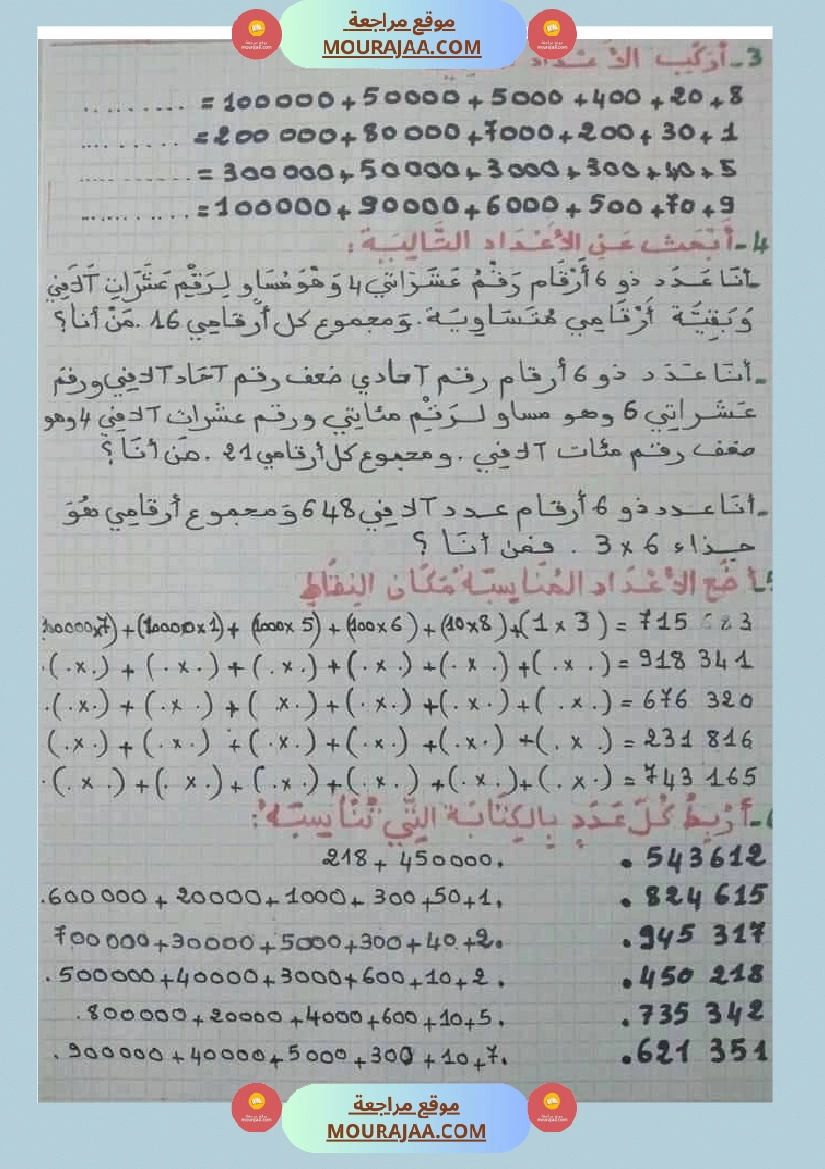 موقع مراجعة
MOURAJAA.COM
3-أركب الأعداد
......... = 100000+50000+5000+400+20+8
......... =200 000+80 000+7000+200+30+1
......... = 300 000+50000+3000+300+40+5
......... =100000+90000+6000+500+70+9
4-أبْحَثُ عَنِ الأَعْدَادِ التَّالِيَةِ :
-أنَا عَدَد ذو 6 أَرْقَام رَقْمُ عَشَرَاتي 4 وَهْوَ مُسَاوٍ لِرَقْمِ عَشَرَاتِ آلَافِي
وَبَقِيَّة أَرْقَامِي مُتَسَاوِيَة. وَمجموع كل أرقامي 16 .مَنْ أنا؟
-أنا عَدَد ذو 6 أرقام رقم آحادي ضعف رقم آحاد آلافي ورقم
عَشَراتِي 6 وهو مساو لرَقْمِ مئاتي ورقم عشرات آلافي 4 وهو
ضعف رقم مئات آلافي . ومجموع كل أرقامي 21 .مَن أنَا؟
-أنَا عدد ذو 6 أرقام عدد آلافي 648 وَمجموع أرقامِي هُوَ
جذاء 6 × 3 . فمن أنَا ؟
5-أضَع الأعْدَاد المُنَاسِبَة مَكَان النِقَاط
(100000×7)+(10000×1)+(1000×5)+(100×6)+(10×8)+(1×3) = 715 683
(.×.)+(.×.)+(.×.)+(.×.)+(.×.)+(.×.)= 918 341
(.×.)+(.×.)+(.×.)+(.×.)+(.×.)+(.×.)= 676 320
(.×.)+(.×.)+(.×.)+(.×.)+(.×.)+(.×.)= 231 816
(.×.)+(.×.)+(.×.)+(.×.)+(.×.)+(.×.)= 743 165
6-أرْبِطُ كُلَّ عَدَدٍ بِالكِتَابَة التِّي تُنَاسِبُهُ:
218+ 450000. . 543612
.600 000 + 20000+1000+ 300+50+1. . 824 615
700 000+30000+5000+300+40+2. .945 317
. 500000+40000+3000+600+10+2 . .450 218
.800000+20000+4000+600+10+5. .735 342
. 900000+40000+5000+300+10+7. .621 351
موقع مراجعة
MOURAJAA.COM